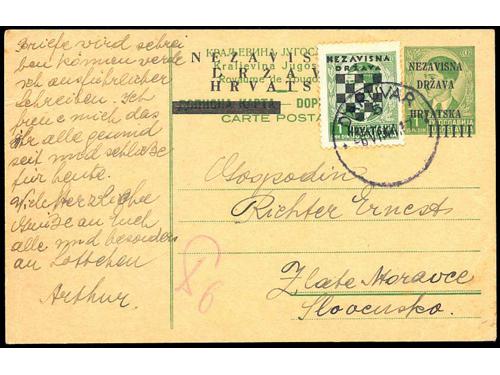 Briefe wird schrei
ben können werde
ich ausführlicher
schreiben. Ich
freue mich das
ihr alle gesund
seit und schließe
für heute.
Viele Herzliche
Grüße an Euch
alle und besonders
an Lottchen
Arthur.
КРАЉЕВИНА ЈУГОСЛ
Kraljevina Jugos
Royaume de Yougo
NEZAVIS
DRŽAV
HRVATS
ДОПИСНА КАРТА – DOP
CARTE POSTA
NEZAVISNA
DRŽAVA
HRVATSKA
VAR
NEZAVISNA
DRŽAVA
HRVATSKA
Gospodin
Richter Ernest
Zlate Moravce
Slovensko.
6